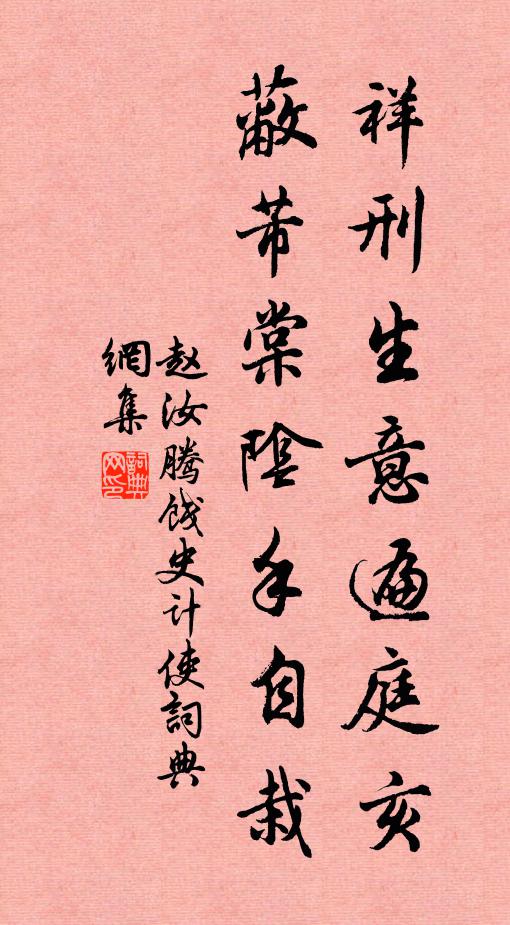 祥刑生意遍庭亥
蔽芾棠陰手自栽
赵汝腾饯史计使詞典
網集
詞典网印